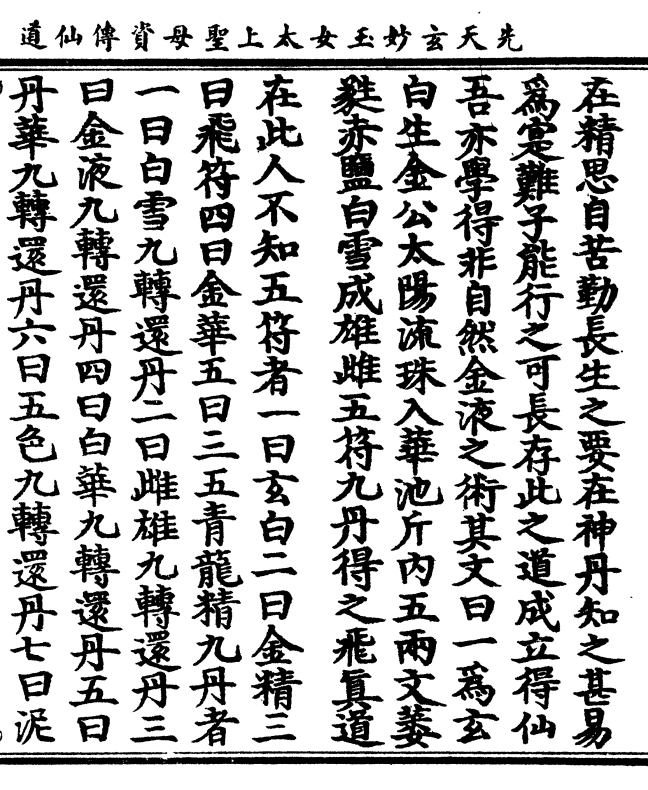 先天玄妙玉女太上聖母資傳仙道
在精思自苦勤長生之要在神丹知之甚易
爲寔難子能行之可長存此之道成立得仙
吾亦學得非自然金液之術其文曰一爲玄
白生金公太陽流珠入華池斤內五兩文蔞
蕤赤鹽白雪成雄雌五符九丹得之飛眞道
在此人不知五符者一曰玄白二曰金精三
曰飛符四曰金華五曰三五青龍精九丹者
一曰白雪九轉還丹二曰雌雄九轉還丹三
曰金液九轉還丹四曰白華九轉還丹五曰
丹華九轉還丹六曰五色九轉還丹七曰泥